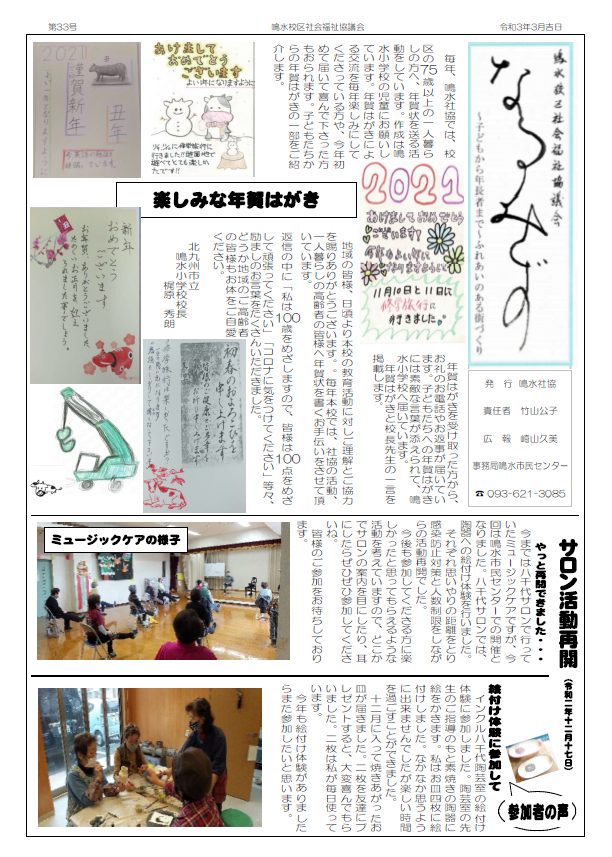 第33号
鳴水校区社会福祉協議会
令和3年3月吉日
鳴水校区社会福祉協議会
なるみずの
～子どもから年長者まで～ふれあいのある街づくり
発行 鳴水社協
責任者 竹山公子
広報 崎山久美
事務局鳴水市民センター
☎093-621-3085
毎年、鳴水社協では、校
区の75歳以上の一人暮ら
しの方へ、年賀状を送る活
動をしています。作成は鳴
水小学校の児童にお願いし
ています。年賀はがきによ
る交流を毎年楽しみにして
くださっている方や、今年初
めて届いて喜んで下さった方
もおられます。子どもたちか
らの年賀はがきの一部をご紹
介します。
あけまして
おめでとう
ございます
よい1年になりますように
2021
謹賀新年
丑年
2021
あけましておめでとう
ございます!
11月10日と11日に
修学旅行に
行きました。
楽しみな年賀はがき
年賀はがきを受け取った方から、
お礼のお電話やお返事が届いてい
ます。子どもたちへの年賀はがき
には素敵な言葉が添えられて、鳴
水小学校へ届いています。
年賀はがきと校長先生の一言を
掲載します。
地域の皆様、日頃より本校の教育活動に対しご理解とご協力
を賜りありがとうございます。毎年本校では、社協の活動、
一人暮らしの高齢者の皆様へ年賀状を書くお手伝いをさせて頂
いています。
返信の中に「私は100歳をめざしますので、皆様は100点をめざ
して頑張ってください」「コロナに気をつけてください」等々、
励ましのお言葉をたくさんいただきました。
どうか地域のご高齢者
の皆様もお体をご自愛
ください。
北九州市立
鳴水小学校校長
梶原 秀朗
新年
おめでとう
ございます
初春のおよろこびを
申し上げます
サロン活動再開
（令和二年十二月十七日）
やっと再開できました・・・
今までは八千代サロンで行って
いたミュージックケアですが、今
回は鳴水市民センターでの開催と
なりました。八千代サロンでは、
陶器への絵付け体験を行いました。
それぞれ思いやりの距離をとり
感染防止対策と人数制限をしなが
らの活動再開でした。
今後も参加してくださる方に楽
しかったと思ってもらえるような
活動を考えていますので、どこか
でサロンの案内を目にしたり、耳
にしたらぜひぜひ参加してくださ
いね。
皆様のご参加をお待ちしており
ます。
ミュージックケアの様子
参加者の声
絵付け体験に参加して
インクル八千代陶芸室の絵付け
体験に参加しました。陶芸室の先
生のご指導のもと素焼きの陶器に
絵をかきます。私はお皿四枚に絵
付けしました。なかなか思うよう
に出来ませんでしたが楽しい時間
を過ごすことができました。
十二月に入って焼きあがったお
皿が届きました。二枚を友達にプ
レゼントすると、大変喜んでもら
いました。二枚は私が毎日使って
います。
今年も絵付け体験がありました
らまた参加したいと思います。